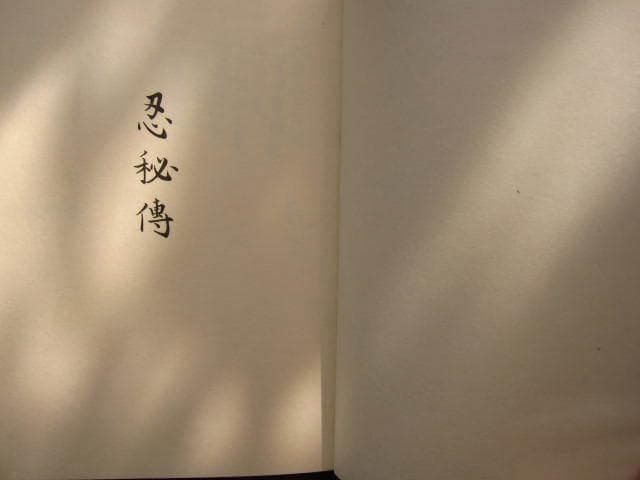 忍秘傳